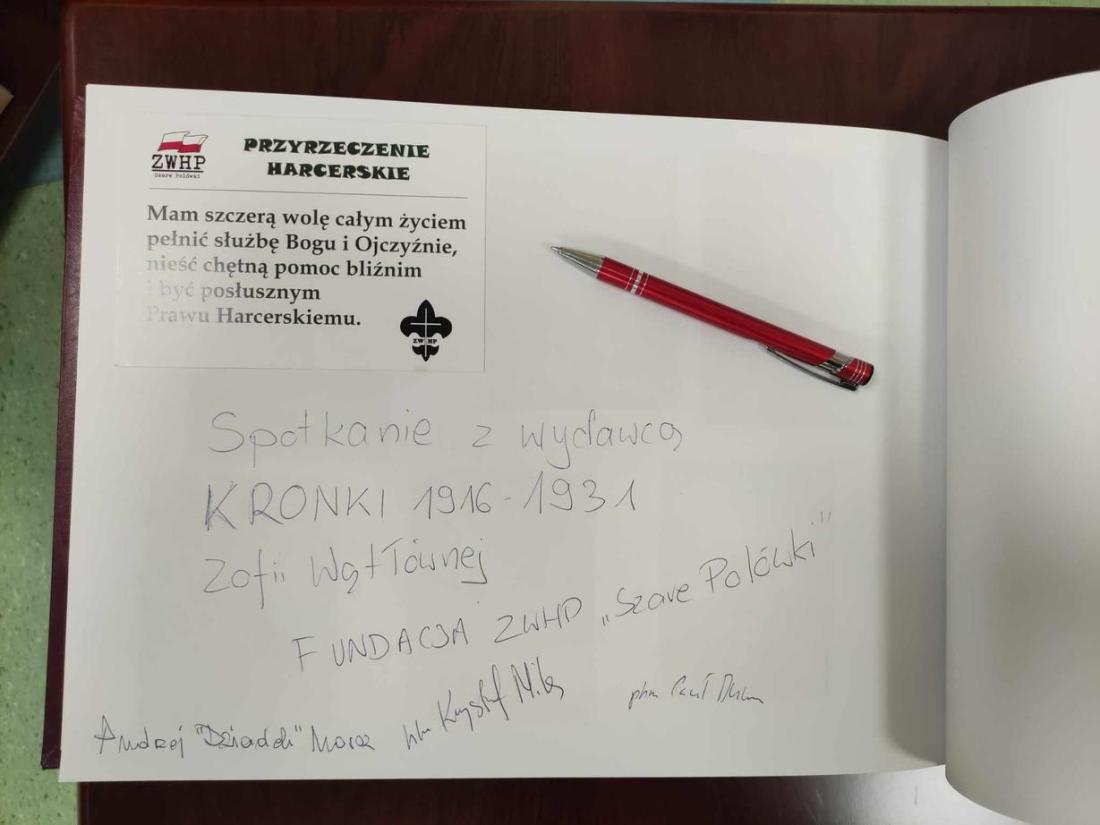 ZWHP
Szare Polówki
PRZYRZECZENIE
HARCERSKIE
Mam szczerą wolę całym życiem
pełnić służbę Bogu i Ojczyźnie,
nieść chętną pomoc bliźnim
i być posłusznym
Prawu Harcerskiemu.
ZW HP
Spotkanie z wydawcą
KRONKI 1916-1931
Zofii Wątłównej
FUNDACJA ZWHP „Szare Polówki"
Andrzej "Dziadek" hm Krzysztof phm